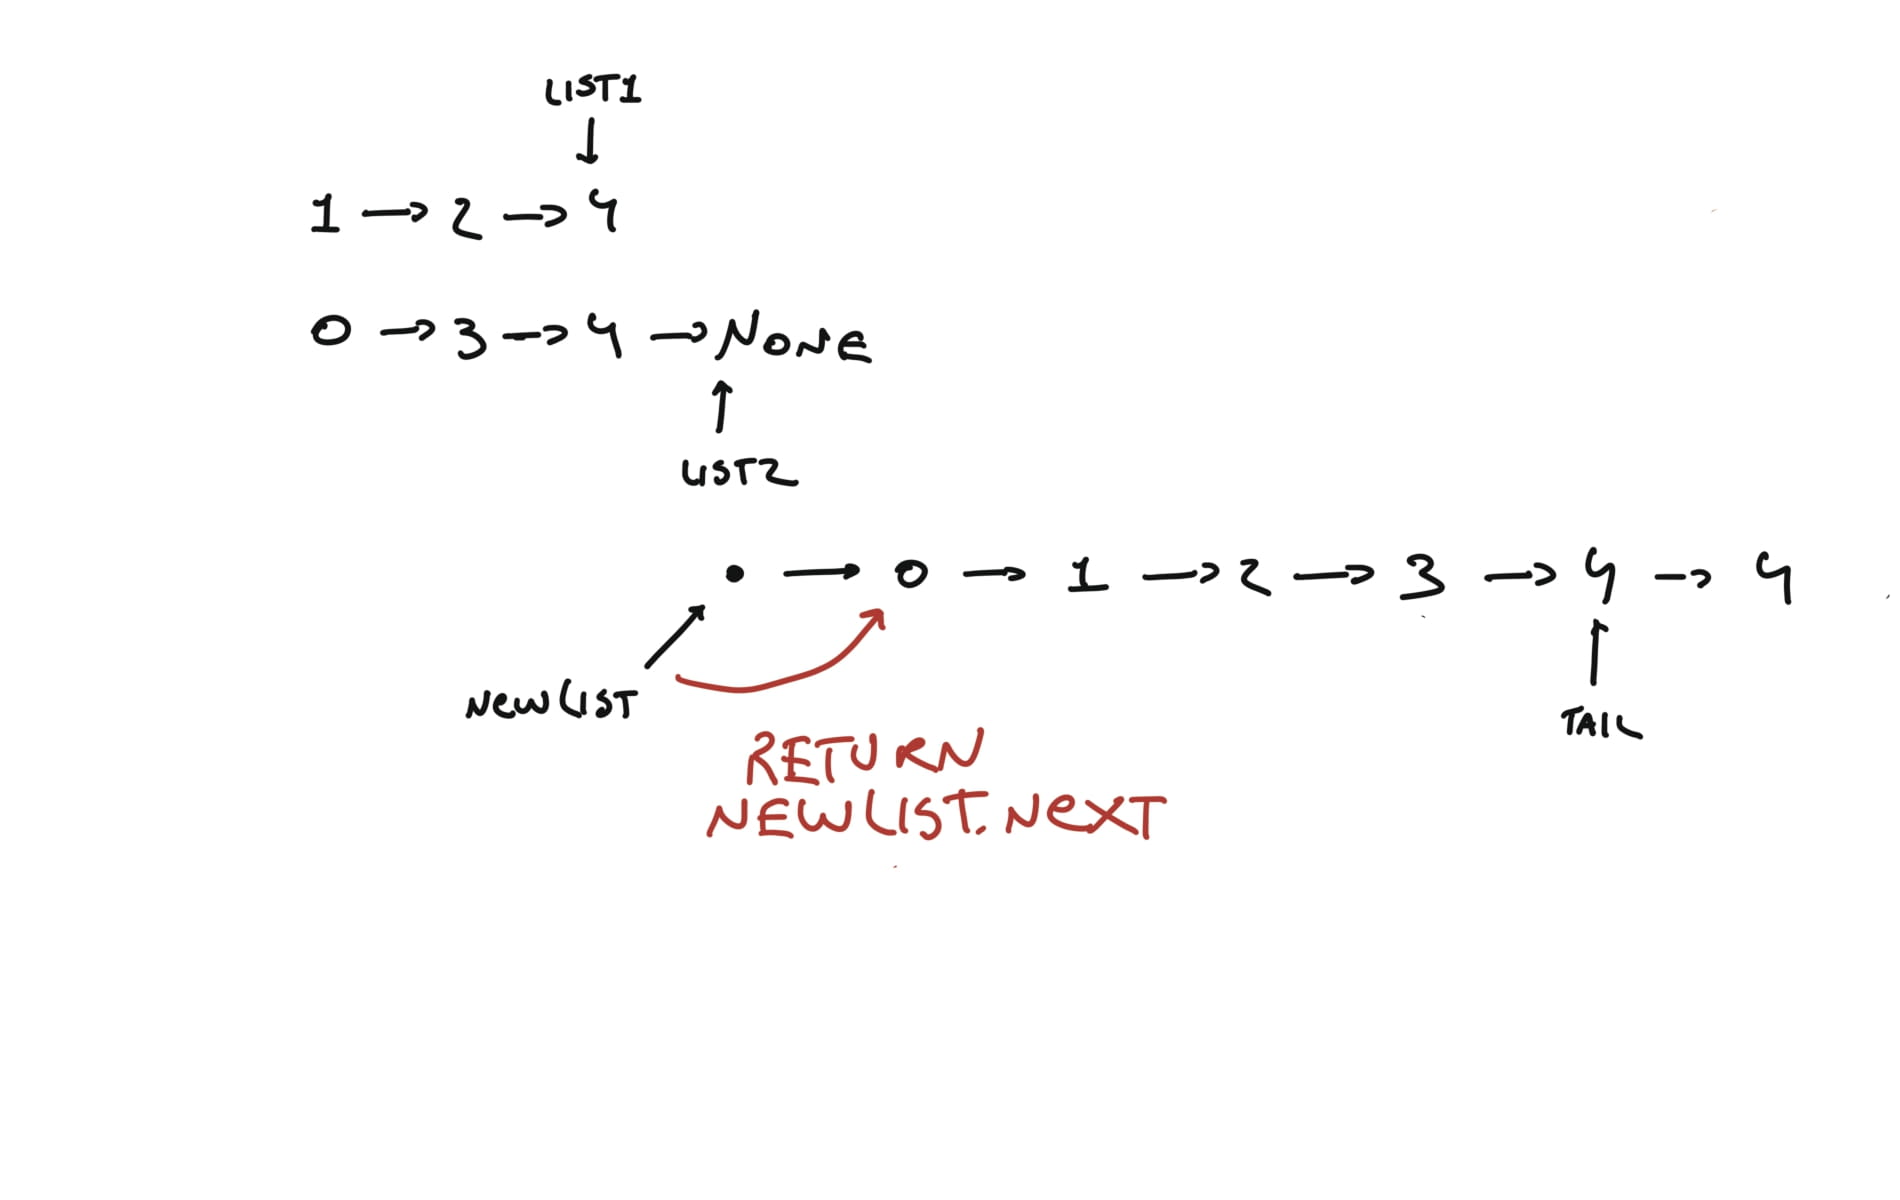 LIST1
↓
1 → 2 → 4
0 → 3 → 4 → NONE
↑
LIST2
• → 0 → 1 → 2 → 3 → 4 → 4
NEWLIST
TAIL
RETURN
NEWLIST.NEXT